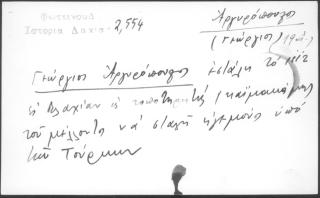 Φωτεινού
Ιστορία Δακία 2,554
Αργυρόπουλος
(Γεώργιος) 19
Γεώργιος Αργυρόπουλος εστάλη το
εις Βλαχίαν ως τοποτηρητής (καϊμακάμης
του μέλλοντος να σταλή ηγεμόνος υπό
των Τούρκων